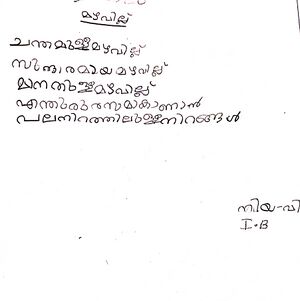 മഴവില്ല്
ചന്തമുള്ളമഴവില്ല്
സുന്ദരമായമഴവില്ല്
മഴവില്ല്
എന്തുരുരസമാകാണാൻ
പലനിറത്തിലുള്ളനിറങ്ങൾ
നിയ-വി
I-B